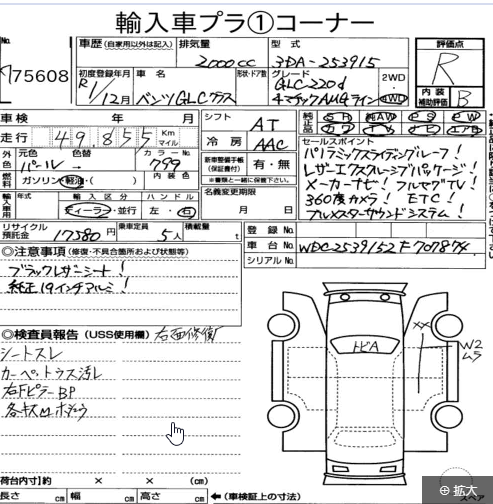 輸入車プラ①コーナー
No.
75608
車歴 (自家用以外は記入)
排気量
2000cc
型式
3DA-253915
評価点
R
内装
補助評価
B
初度登録年月
R1/12月
車名
ベンツGLCクラス
形状・ドア数
グレード
GLC220d
4マチックAMGライン
2WD
4WD
車検 年 月
走行 49,855 Km マイル
シフト
AT
冷房
AAC
純正品
SR AW PS PW
外色
元色
パール
色替
カラーNo.
799
内装色
燃料
ガソリン・軽油・( )
新車整備手帳
(保証書付)
有・無
※書類と一緒に保管下さい。
輸入車用
年式
輸入区分
ディーラー・並行
ハンドル
左・右
名義変更期限
月 日
セールスポイント
パノラミックスライディングルーフ!
レザーエクスクルーシブパッケージ!
メーカーナビ! フルセグTV!
360度カメラ! ETC!
ブルメスターサウンドシステム!
リサイクル
預託金
17580円
乗車定員
5人
積載量
t
登録No.
車台No.
WDC2539152F707874
シリアルNo.
◎注意事項 (修復・不具合箇所および状態等)
ブラックレザーシート!
純正19インチアルミ!
◎検査員報告 (USS使用欄)
右面修復
シートスレ
カーペ・トラス汚レ
右FピラーBP
各キズ凹
トビA
XX
W2
荷台内寸) 約 × × (cm)
長さ cm 幅 cm 高さ cm ←(車検証上の寸法)
スペア
拡大